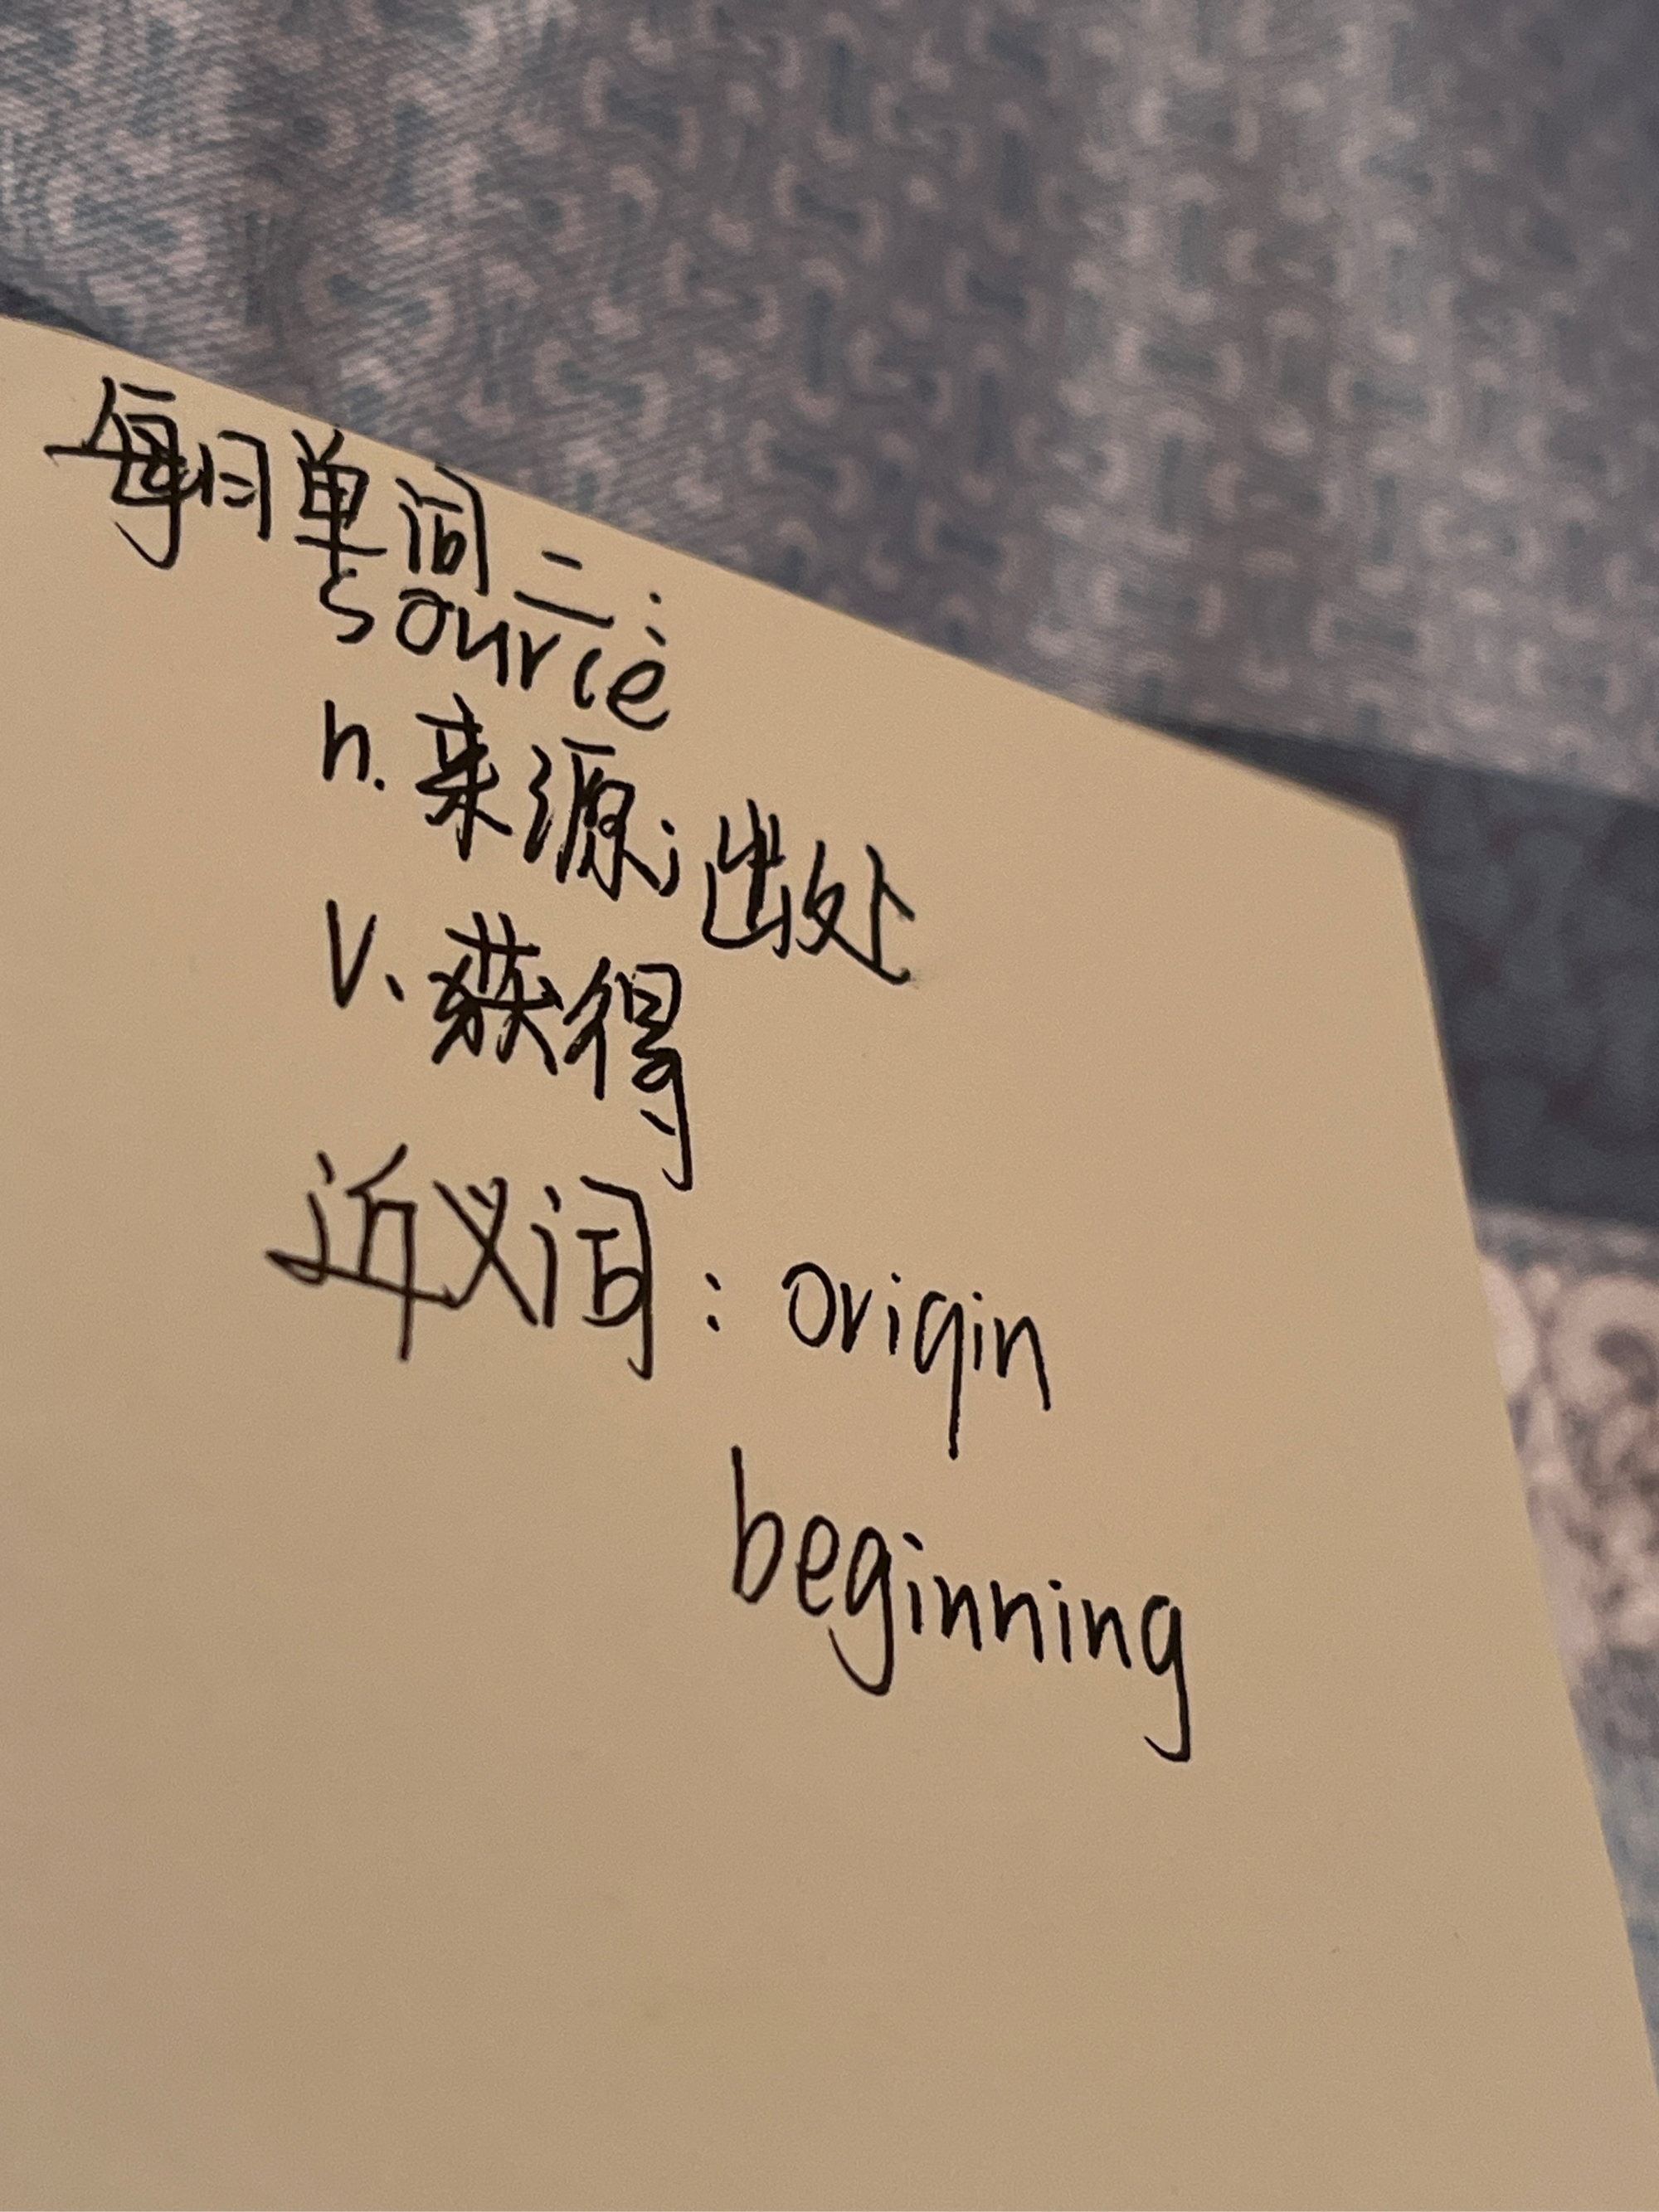 每日单词二：
source
n. 来源；出处
V. 获得
近义词：origin
beginning